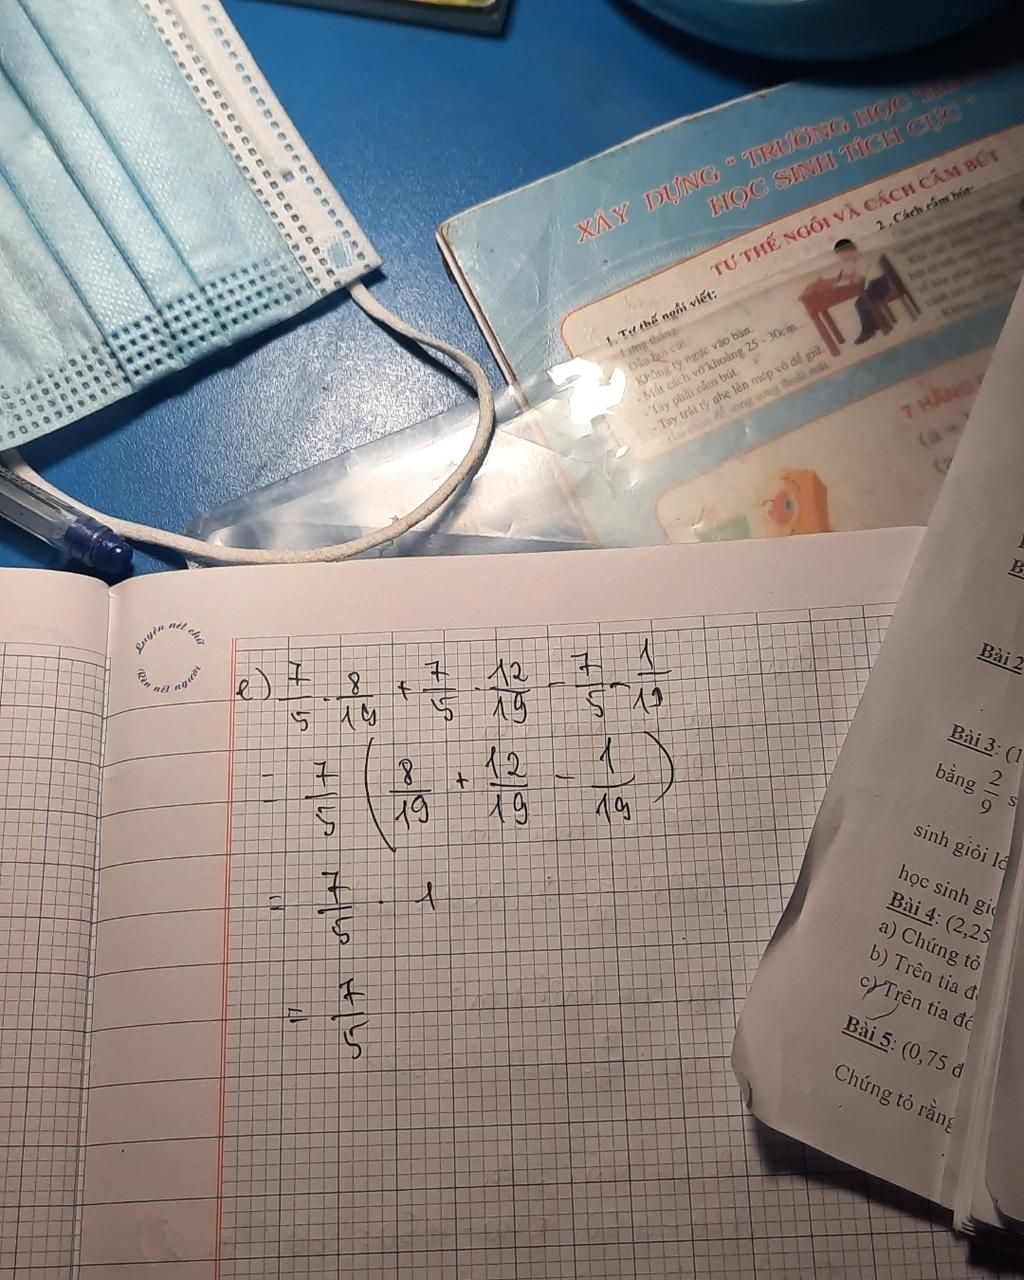 XÂY DỰNG " TRƯỜNG HỌC
HỌC SINH TÍCH CỰC "
TƯ THẾ NGỒI VÀ CÁCH CẦM BÚT
1. Tư thế ngồi viết:
2. Cách cầm bút:
- Lưng thẳng
- Không tỳ ngực vào bàn.
- Mắt cách vở khoảng 25 - 30cm.
- Tay phải cầm bút.
- Tay trái tỳ nhẹ lên mép vở để giữ.
7 HẰNG
Luyện nét chữ
Rèn nét người
e) 7/5 . 8/19 + 7/5 . 12/19 - 7/5 - 1/19
= 7/5 ( 8/19 + 12/19 - 1/19 )
= 7/5 . 1
= 7/5
Bài 2
Bài 3: (1
bằng 2/9 s
sinh giỏi lớ
học sinh giỏ
Bài 4: (2,25
a) Chứng tỏ
b) Trên tia đ
c) Trên tia đố
Bài 5: (0,75 đ
Chứng tỏ rằng